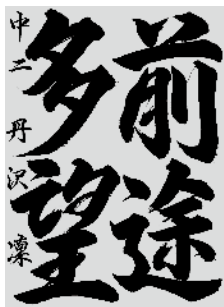 前途
多望
中二 丹沢 凛